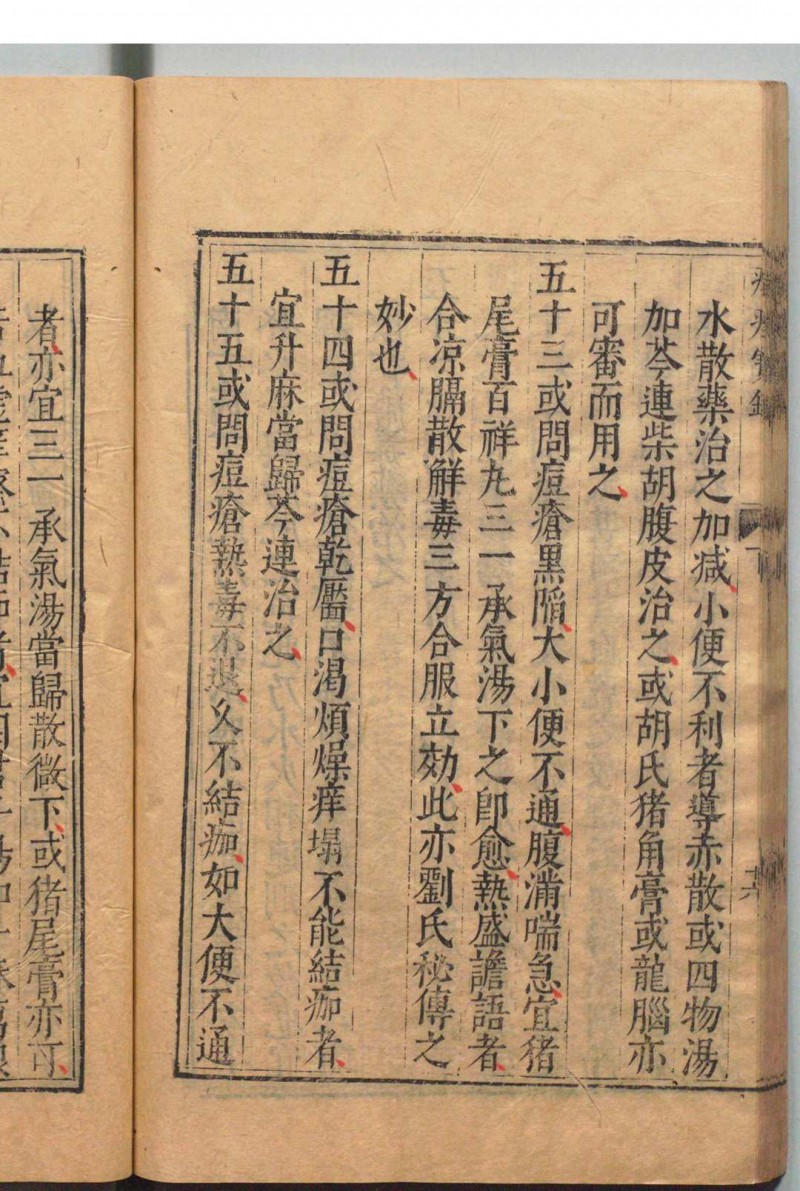 水散藥治之加減小便不利者導赤散或四物湯
加芩連柴胡腹皮治之或胡氏猪角膏或龍腦亦
可審而用之
五十三或問痘瘡黑陷大小便不通腹滿喘急宜猪
尾膏百祥丸三一承氣湯下之即愈熱盛譫語者
合凉膈散觧毒三方合服立効此亦劉氏秘傳之
妙也
五十四或問痘瘡乾靨口渴煩燥痒塌不能結痂者
宜升麻當歸芩連治之
五十五或問痘瘡熱毒不退久不結痂如大便不通
者亦宜三一承氣湯當歸散微下或猪尾膏亦可